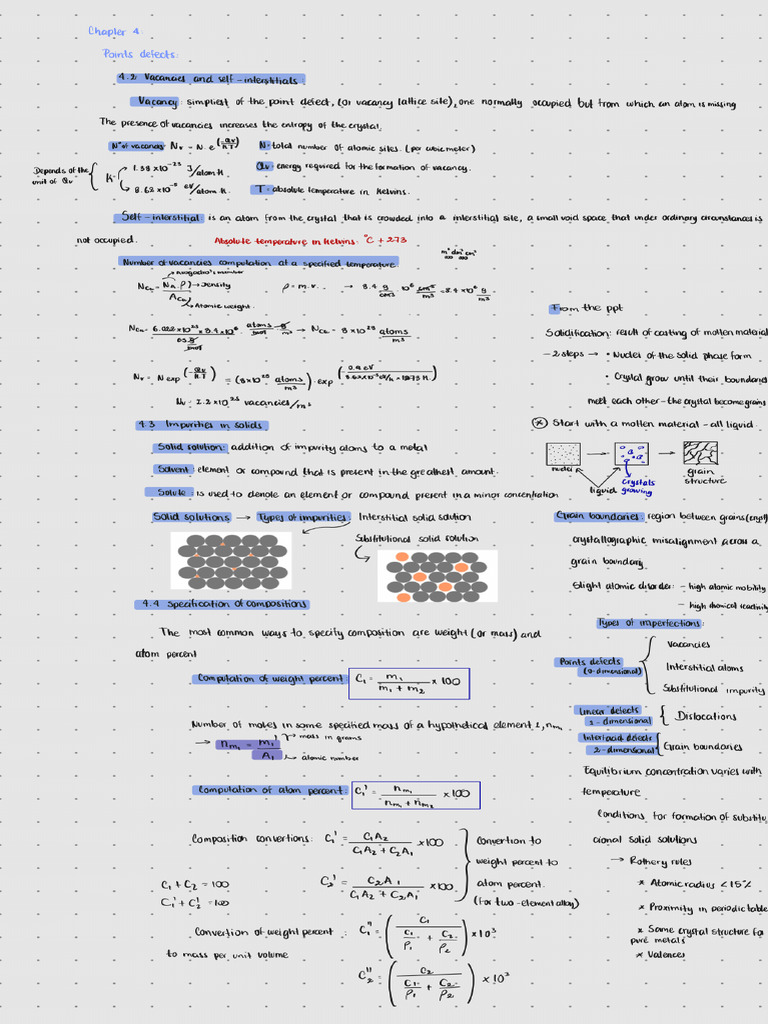 Chapter 4
Points defects:
4.2 Vacancies and self-interstitials
Vacancy: simpliest of the point defect, (or vacancy lattice site), one normally occupied but from which an atom is missing
The presence of vacancies increases the entropy of the crystal.
Nº of vacancies Nv = N. e^(-Qv/KT) N= total number of atomic sites. (per cubic meter)
Qv= energy required for the formation of vacancy.
T= absolute temperature in Kelvins.
Depends of the unit of Qv { K 1.38 x10^-23 J/atom K
8.62 x10^-5 eV/atom K.
Self-interstitial is an atom from the crystal that is crowded into a interstitial site, a small void space that under ordinary circunstances is
not occupied. Absolute temperature in Kelvins: °C + 273
m³ dm³ cm³
Number of vacancies computation at a specified temperature.
Avogadro's number
NCu = NA.ρ / ACu → Density ρ = m.v.. → 8.4 g/cm³ . 10^6 cm³/m³ = 8.4 x10^6 g/m³
Atomic weight.
→ NCu = 8 x10^28 atoms/m³
Nv = N exp(-Qv/KT) = (8x10^28 atoms/m³) . exp
Nv = 2.2 x10^25 vacancies/m³
4.3 Impurities in solids
Solid solution: addition of impurity atoms to a metal
Solvent: element or compound that is present in the greathest amount.
Solute: is used to denote an element or compound present in a minor concentration
Solid solutions → Types of impurities Interstitial solid solution
Substitutional solid solution
4.4 Specification of compositions
The most common ways to specify composition are weight (or mass) and
atom percent
Computation of weight percent C1 = m1 / (m1 + m2) x 100
Number of moles in some specified mass of a hypothetical element 1, nm1
→ nm1 = m1' / A1 mass in grams
atomic number
Computation of atom percent: C1' = nm1 / (nm1 + nm2) x 100
Composition convertions: C1' = C1A2 / (C1A2 + C2A1) x100
C2' = C2A1 / (C1A2 + C2A1) x100
Convertion to
weight percent to
atom percent.
(for two-element alloy)
C1 + C2 = 100
C1' + C2' = 100
Convertion of weight percent
to mass per unit volume
: C1'' = (C1 / (C1/ρ1 + C2/ρ2)) x 10³
C2'' = (C2 / (C1/ρ1 + C2/ρ2)) x 10³
From the ppt
Solidification: result of casting of molten material
- 2 steps → • Nuclei of the solid phase form
• Crystal grow until their boundaries
meet each other - the crystal become grains
* Start with a molten material - all liquid.
nuclei
liquid
crystals
growing
grain
structure
Grain boundaries: region between grains (cryst
crystallographic misalignment across a
grain boundary
Slight atomic disorder: - high atomic mobility
- high chemical reactivity
Types of imperfections:
Points defects
(0-dimensional)
Vacancies
Interstitial atoms
Substitutional impurity
Linear defects
1-dimensional
{ Dislocations
2-dimensional { Grain boundaries
Equilibrium concentration varies with
temperature
Conditions for formation of substitu
cional solid solutions
→ Rothery rules
* Atomic radius < 15%
* Proximity in periodic table
* Same crystal structure for
pure metals
* Valences